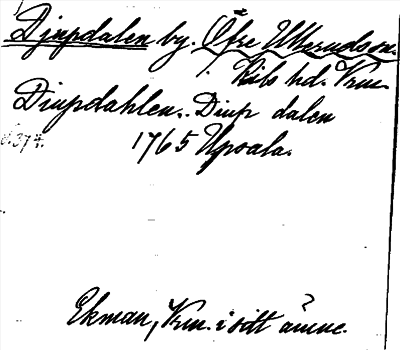 Djupdalen by. Öfre Ullerud sn.
Kils hd. Vrm.
Diupdahlen. Diup dalen
s. 374. 1765 Upsala.
Ekman, Vrm. i sitt ämne.